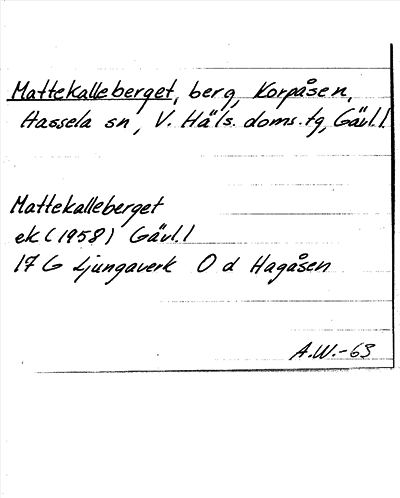 Mattekalleberget, berg, Korpåsen,
Hassela sn, V. Häls. doms.tg, Gävl.l.
Mattekalleberget
ek (1958) Gävl.l
17 G Ljungaverk O d Hagåsen
A.W.-63